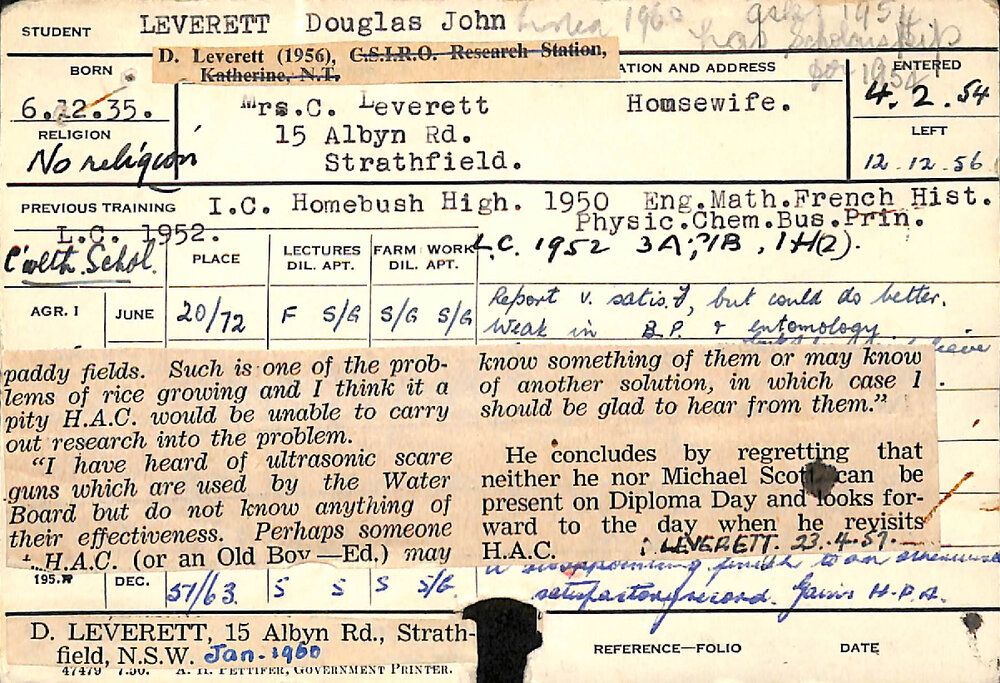 STUDENT LEVERETT Douglas John
1960
1954
has Scholarship
for 1954
D. Leverett (1956), C.S.I.R.O. Research Station,
Katherine, N.T.
BORN
ATION AND ADDRESS
ENTERED
6.12.35.
Mrs.C. Leverett Homsewife.
4.2.54
RELIGION
15 Albyn Rd.
LEFT
No religion
Strathfield.
12.12.56
PREVIOUS TRAINING I.C. Homebush High. 1950 Eng.Math.French Hist.
Physic.Chem.Bus.Prin.
L.C. 1952.
L.C. 1952 3A; 1B, 1H(2).
C'wlth. Schol.
PLACE
LECTURES
DIL. APT.
FARM WORK
DIL. APT.
AGR. I JUNE 20/72 F S/G S/G S/G
Report v. satis.y, but could do better.
Weak in B.P. & entomology
paddy fields. Such is one of the prob-
lems of rice growing and I think it a
pity H.A.C. would be unable to carry
out research into the problem.
"I have heard of ultrasonic scare
guns which are used by the Water
Board but do not know anything of
their effectiveness. Perhaps someone
H.A.C. (or an Old Boy —Ed.) may
know something of them or may know
of another solution, in which case I
should be glad to hear from them."
He concludes by regretting that
neither he nor Michael Scott can be
present on Diploma Day and looks for-
ward to the day when he revisits
H.A.C.
LEVERETT. 23.4.57.
195. DEC. 57/63. S S S S/G.
A disappointing finish to an otherwise
satisfactory record. Gains H.D.A.
D. LEVERETT, 15 Albyn Rd., Strath-
field, N.S.W. Jan. 1960
47479 7.50. A. H. PETTIFER, GOVERNMENT PRINTER.
REFERENCE—FOLIO DATE